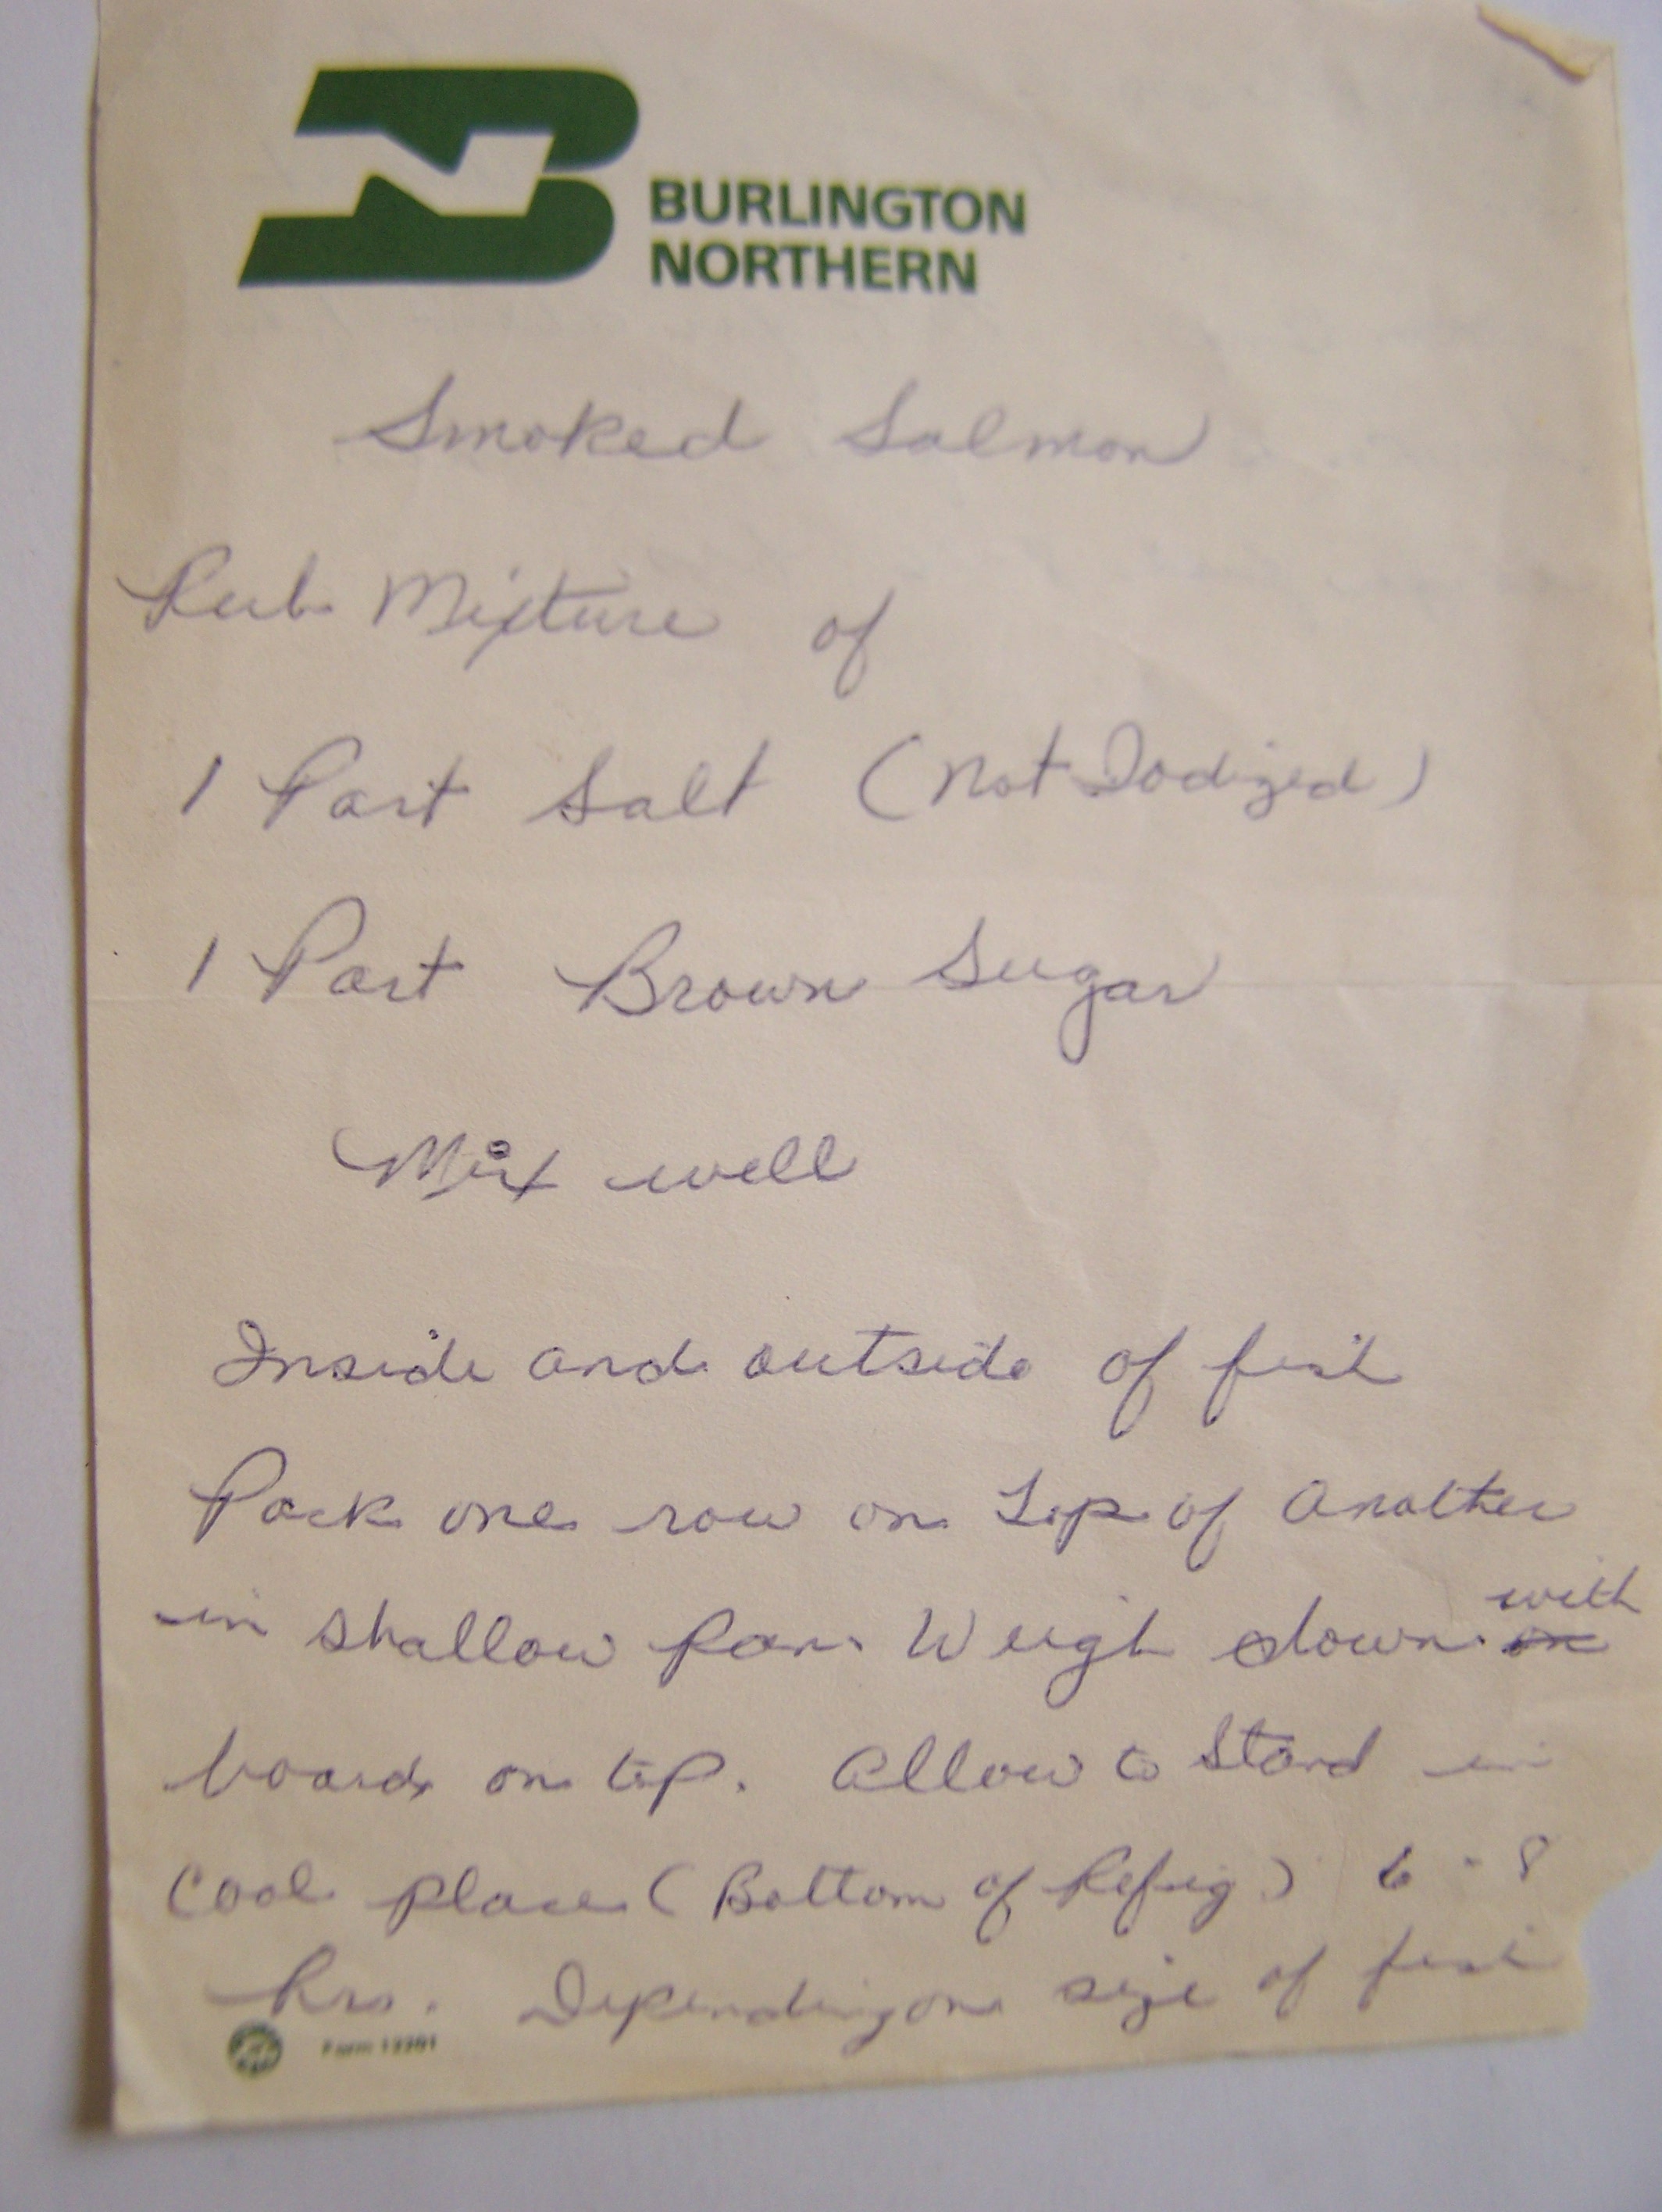 BURLINGTON
NORTHERN
Smoked Salmon
Rub Mixture of
1 Part Salt (Not Iodized)
1 Part Brown Sugar
Mix well
Inside and outside of fish
Pack one row on top of another
in shallow pan. Weigh down with
boards on top. Allow to stand in
cool place (Bottom of Refrig.) 6 - 8
hrs. Depending on size of fish
Form 12201